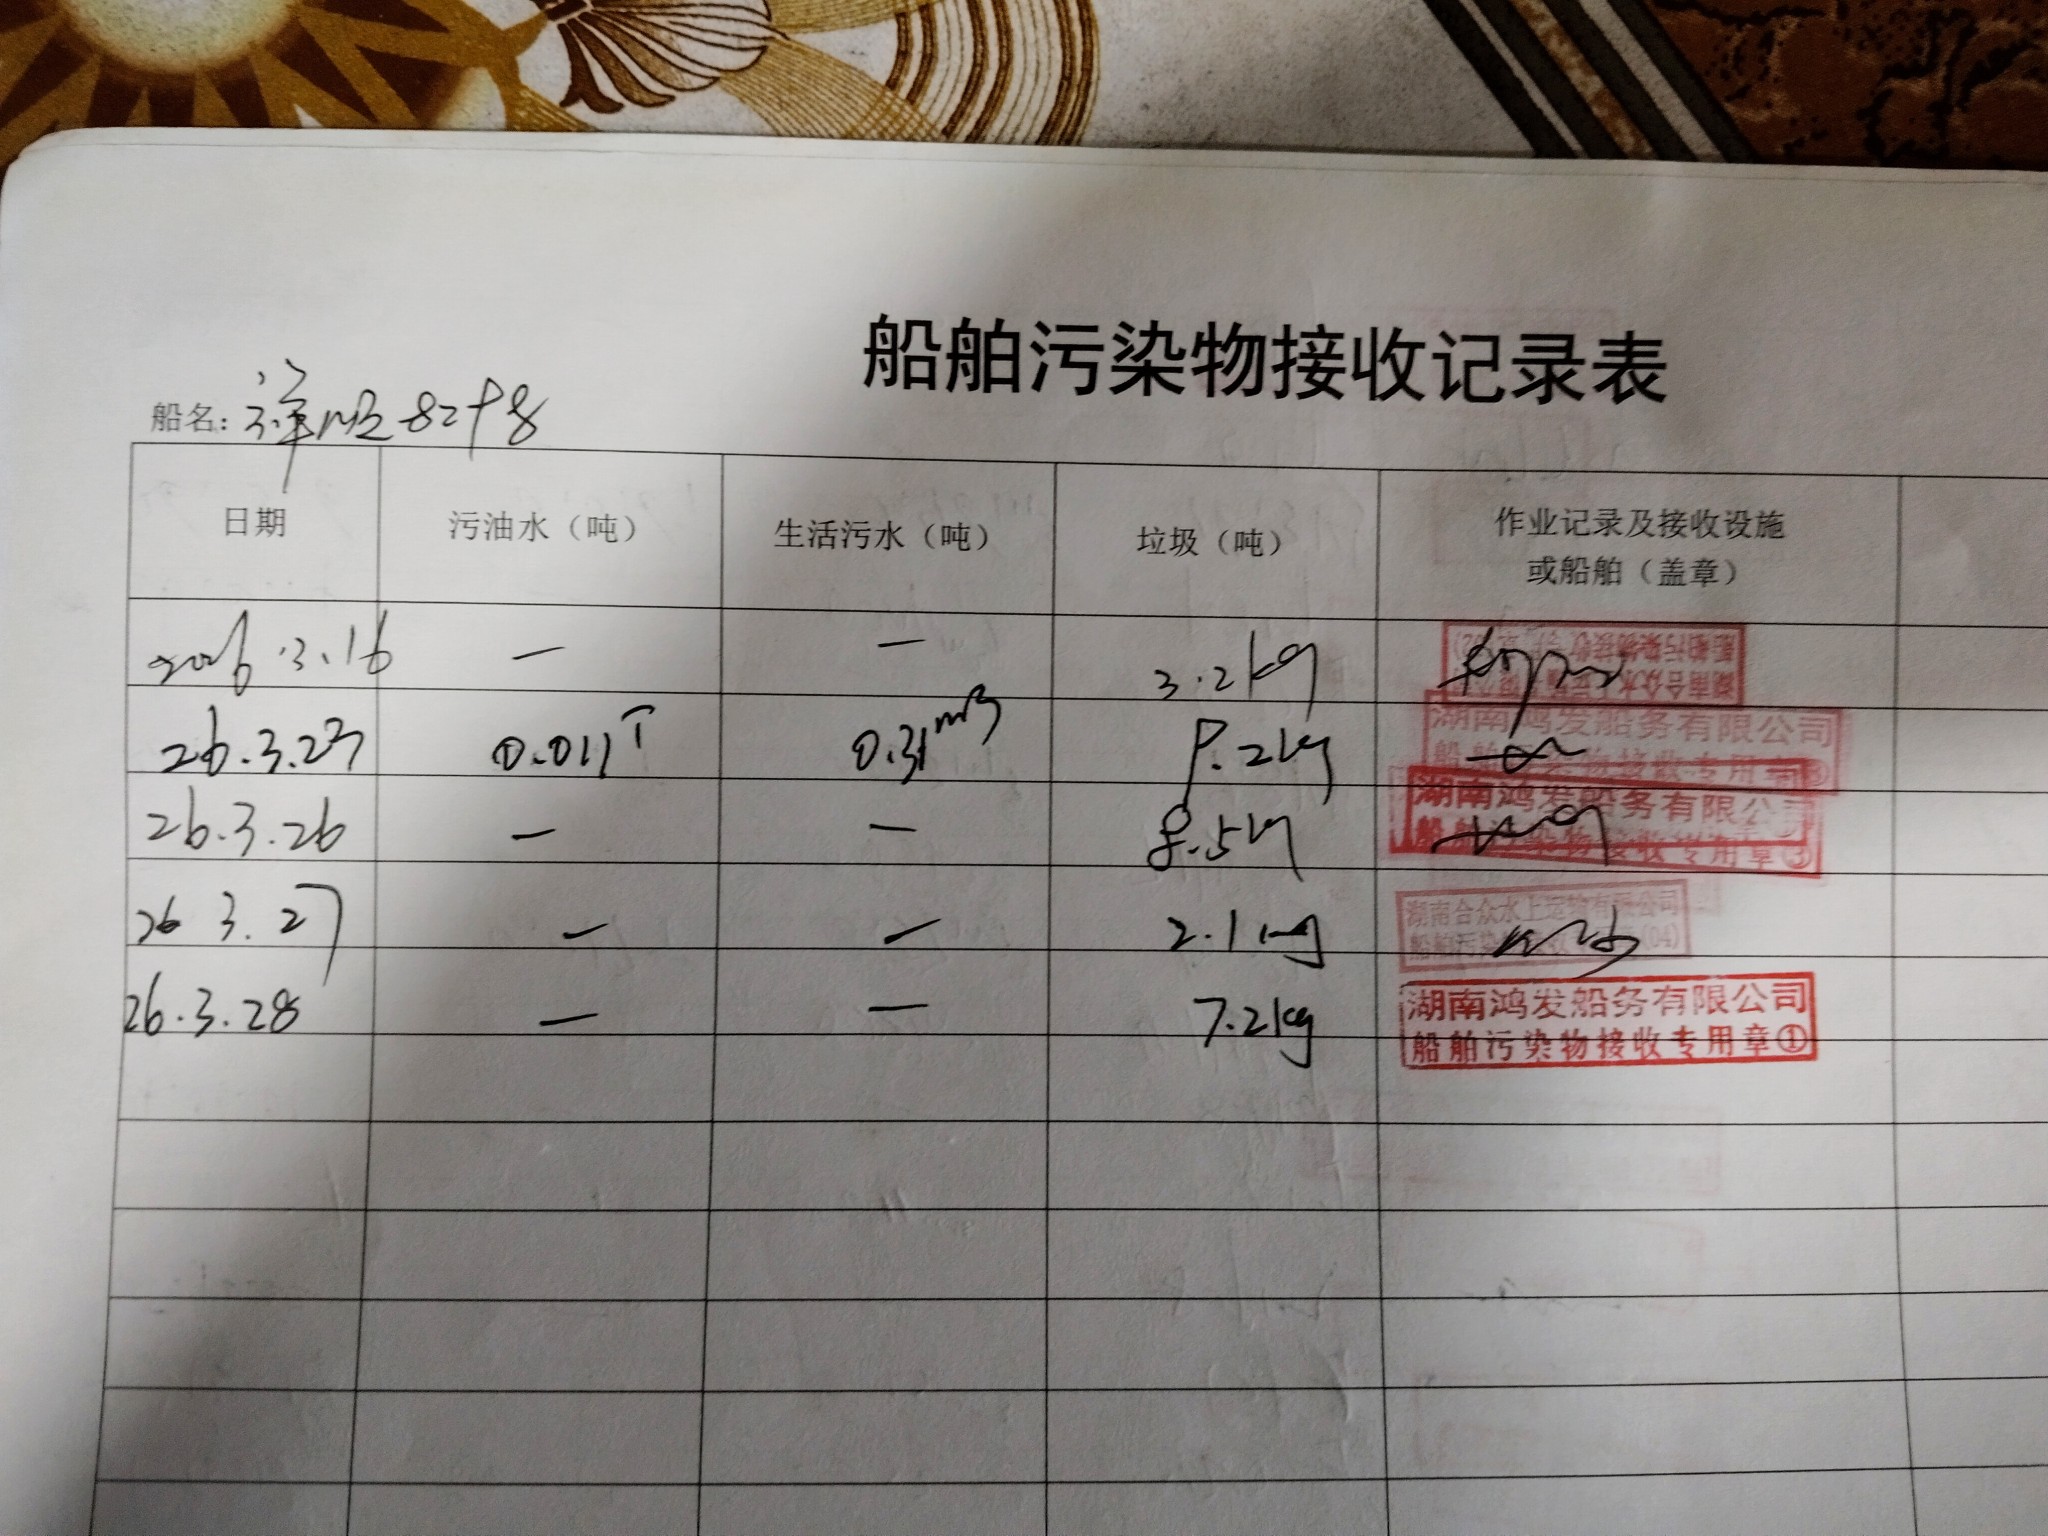 船舶污染物接收记录表
船名: 祥顺8278
日期 污油水（吨） 生活污水（吨） 垃圾（吨） 作业记录及接收设施
或船舶（盖章）
2026.3.16 — — 3.2kg
26.3.23 0.011T 0.31m3 9.2kg
湖南鸿发船务有限公司
船舶污染物接收专用章③
26.3.26 — — 8.5kg
湖南鸿发船务有限公司
船舶污染物接收专用章③
26 3.27 — — 2.1kg
湖南合众水上运物有限公司
船舶污染 (04)
26.3.28 — — 7.2kg
湖南鸿发船务有限公司
船舶污染物接收专用章①